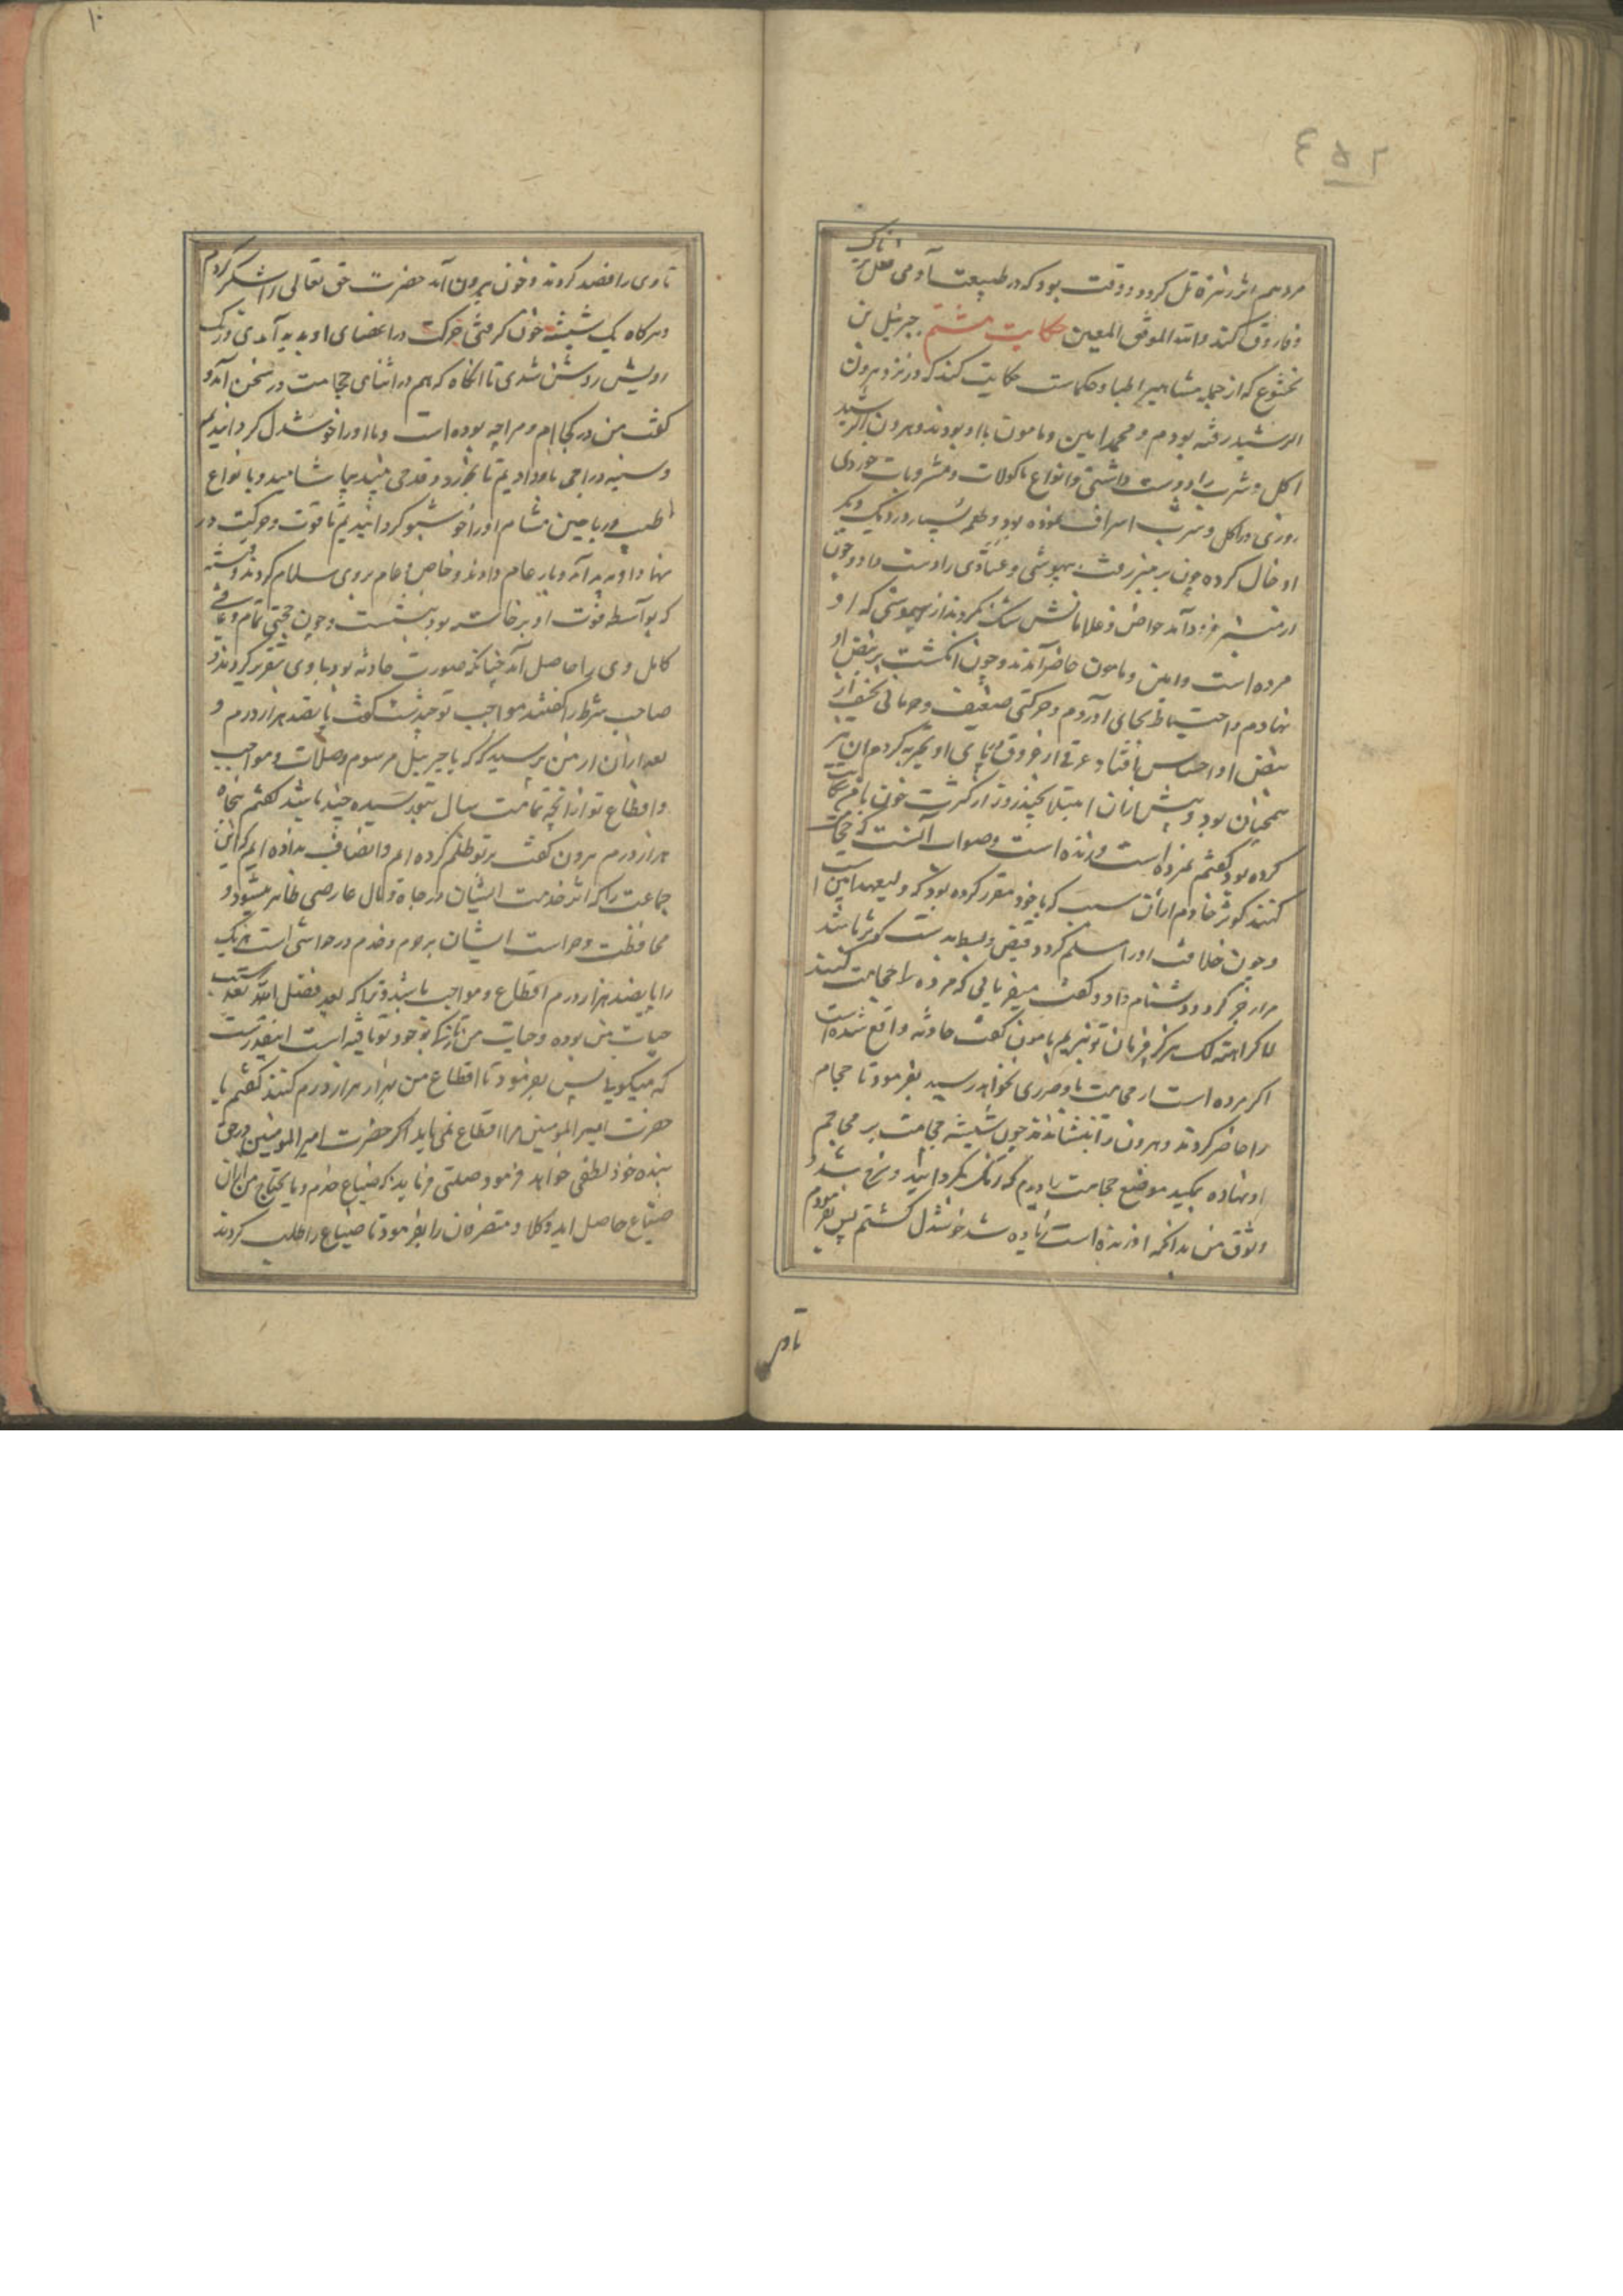 ۴۵۲
مردهم اثر زهر قاتل کرد و وقت بود که در طبیعت آدمی فعل تریاک
و فاروق کند والله الموفق المعین حکایت هشتم جبرئیل بن
بختشوع که از جمله مشاهیر اطبا و حکماست حکایت کند که در نزد هرون
الرشید رفته بودم و محمد امین و مامون با او بودند و هرون الرشید
اکل و شرب را دوست داشتی و انواع ماکولات و مشروبات خوردی
روزی در اکل و شرب اسراف نموده بود و طعم بسیار در یک دیگر
ادخال کرده چون بر منبر رفت بیهوشی و غشاوی را دست داد و چون
از منبر فرود آمد خواص و غلامانش شک نکردند از بیهوشی که او
مرده است و امین و مامون حاضر آمدند و چون انکشت بر نبض او
نهادم و احتیاط بجای آوردم و حرکتی ضعیف و خفی از
نبض او احساس افتاد و عرقی از عروق پای او تجربه کردم آن نیز
همچنان بود و پیش ازان ابتلا بچند روز از کثرت خون با من شکایت
کرده بود گفتم نمرده است و زنده است و صواب آنست که حجامت
کنند کوثر خادم ازان سبب که با خود مقرر کرده بود که ولیعهد امین است
و چون خلافت او را مسلم کردد قبض و بسط بدست کوثر باشد
مرا زجر کرد و دشنام داد و گفت میفرمایی که مرده را حجامت کنند
لا کرامة لک هرگز فرمان تو نبریم مامون گفت حادثه واقع شده است
اگر مرده است از حجامت باو ضرری نخواهد رسید بفرمود تا حجام
را حاضر کردند و هرون را بنشاندند چون شیشه حجامت بر محاجم
او نهاده بمکید موضع حجامت را دیدم که رنگ بگردانید و سرخ شد و
وثوق من بدانکه او زنده است زیاده شد خوشدل گشتم پس بفرمودم
تا وی
۱۰
تا وی را فصد کردند و خون بیرون آمد حضرت حق تعالی را شکر کردم
و هرکاه یک شیشه خون گرفتی حرکت در اعضای او پدید آمدی و رنگ
رویش روشن شدی تا آنگاه که هم در اثنای حجامت در سخن آمد و
گفت من در کجا ام و مرا چه بوده است و ما او را خوشدل کردانیدیم
و سینه دراجی باو دادیم تا بخورد و قدحی نبید بیاشامید و با نواع
طیب و ریاحین مشام او را خوشبو کردانیدیم تا قوت و حرکت در
نهاد او پدید آمد و بار عام دادند و خاص و عام بروی سلام کردند و فتنه
که بواسطه فوت او برخاسته بود بنشست و چون صحتی تمام و عافیتی
کامل وی را حاصل آمد چنانکه صورت حادثه بود با وی تقریر کردند و
صاحب شرط را گفتند مواجب تو چندست گفت پانصد هزار درم و
بعد ازان از من پرسید که یا جبرئیل مرسوم و صلات و مواجب
و اقطاع تو از آنچه تمامت سال بتو رسیده چند باشد گفتم پنجاه
هزار درم هرون گفت بر تو ظلم کرده ام و انصاف نداده ایم که این
جماعت را که اثر خدمت ایشان در جاه و مال عارضی ظاهر میشود و
محافظت و حراست ایشان بر حرم و خدم و حواشی است هریک
را پانصد هزار درم اقطاع و مواجب باشد و ترا که بعد فضل الله تعالی سبب
حیات من بوده و حیات من تازه بوجود تو یافته است اینقدرست
که میگویی پس بفرمود تا اقطاع من هزار هزار درم کنند گفتم یا
حضرت امیر المومنین مرا اقطاع نمی باید اگر حضرت امیر المومنین در حق
بنده خود لطفی خواهد فرمود صلتی فرماید که ضیاع خرم و مایحتاج من ازان
ضیاع حاصل آید وکلا و متصرفان را بفرمود تا ضیاع را طلب کردند